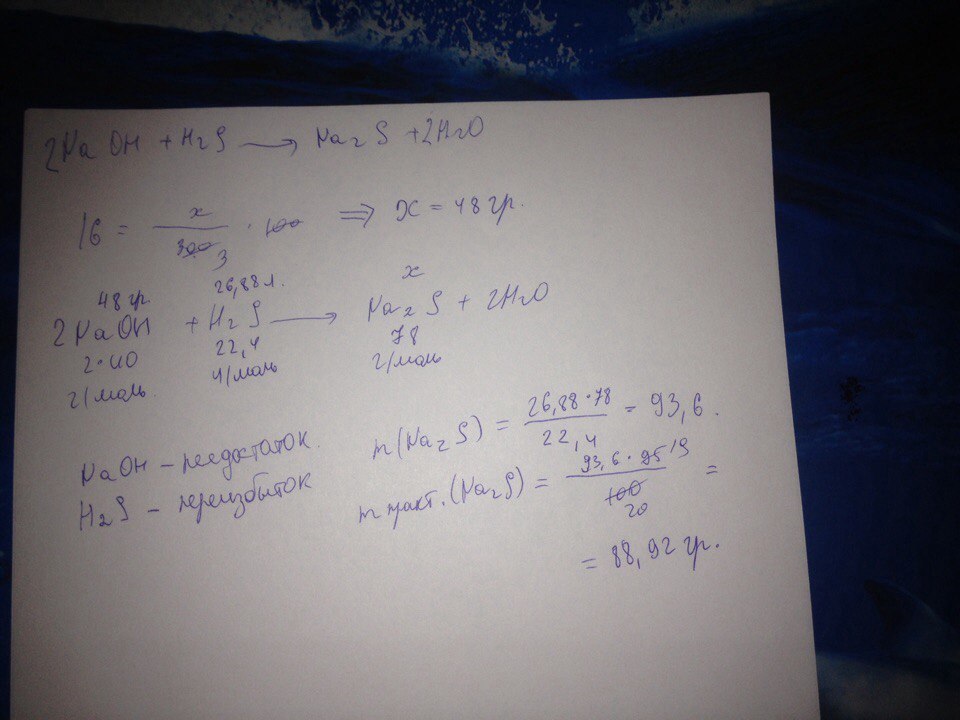 2NaOH + H2S ⟶ Na2S + 2H2O
16 = x / 300 3 · 100 ⟹ x = 48 гр.
48 гр. 26,88 л. x
2NaOH + H2S ⟶ Na2S + 2H2O
2·40 22,4 78
г/моль. л/моль г/моль
NaOH – недостаток.
H2S – переизбыток
m(Na2S) = 26,88·78 / 22,4 = 93,6.
m практ.(Na2S) = 93,6·95 19 / 100 20 =
= 88,92 гр.